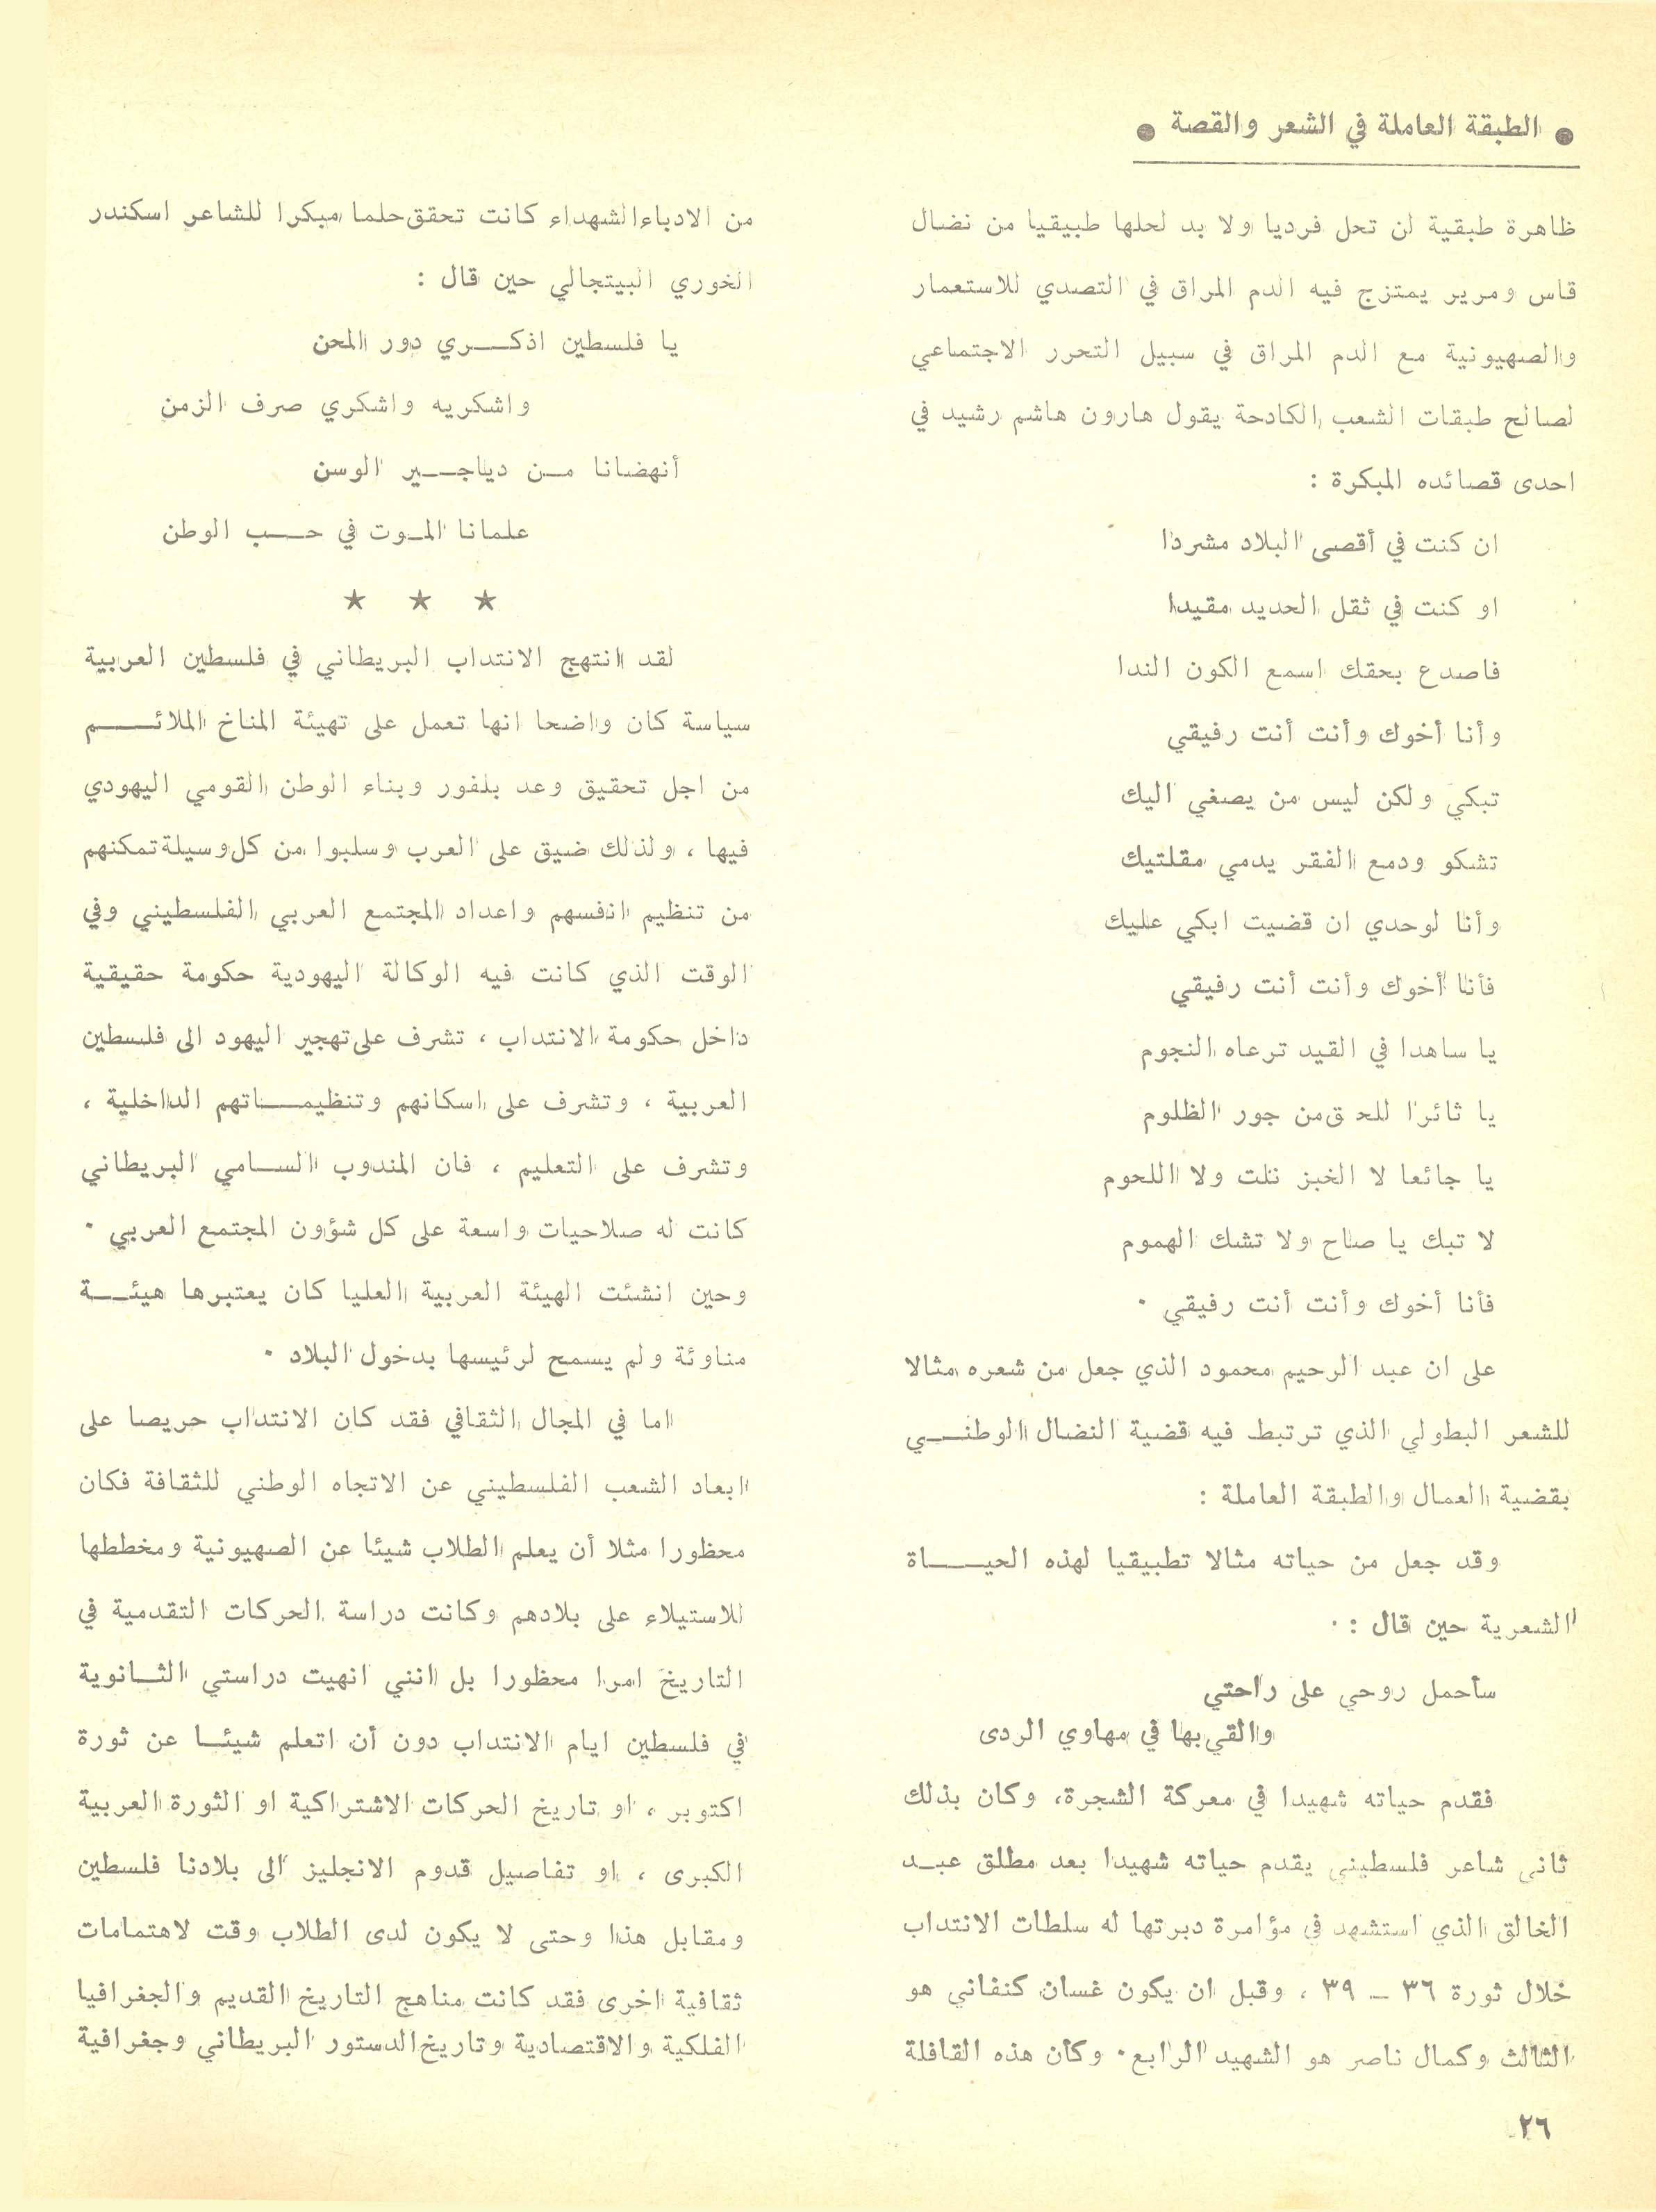 ● الطبقة العاملة في الشعر والقصة ●
ظاهرة طبقية لن تحل فرديا ولا بد لحلها طبيقيا من نضال
قاس ومرير يمتزج فيه الدم المراق في التصدي للاستعمار
والصهيونية مع الدم المراق في سبيل التحرر الاجتماعي
لصالح طبقات الشعب الكادحة يقول هارون هاشم رشيد في
احدى قصائده المبكرة :
ان كنت في أقصى البلاد مشردا
او كنت في ثقل الحديد مقيدا
فاصدع بحقك اسمع الكون الندا
وأنا أخوك وأنت أنت رفيقي
تبكي ولكن ليس من يصغي اليك
تشكو ودمع الفقر يدمي مقلتيك
وأنا لوحدي ان قضيت ابكي عليك
فأنا أخوك وأنت أنت رفيقي
يا ساهدا في القيد ترعاه النجوم
يا ثائرا للحق من جور الظلوم
يا جائعا لا الخبز نلت ولا اللحوم
لا تبك يا صاح ولا تشك الهموم
فأنا أخوك وأنت أنت رفيقي ٠
على ان عبد الرحيم محمود الذي جعل من شعره مثالا
للشعر البطولي الذي ترتبط فيه قضية النضال الوطنـــي
بقضية العمال والطبقة العاملة :
وقد جعل من حياته مثالا تطبيقيا لهذه الحيـــــاة
الشعرية حين قال : ٠
سأحمل روحي على راحتي
والقي بها في مهاوي الردى
فقدم حياته شهيدا في معركة الشجرة، وكان بذلك
ثاني شاعر فلسطيني يقدم حياته شهيدا بعد مطلق عبـد
الخالق الذي استشهد في مؤامرة دبرتها له سلطات الانتداب
خلال ثورة ٣٦ ـ ٣٩ ، وقبل ان يكون غسان كنفاني هو
الثالث وكمال ناصر هو الشهيد الرابع ٠ وكأن هذه القافلة
٢٦
من الادباء الشهداء كانت تحقق حلما مبكرا للشاعر اسكندر
الخوري البيتجالي حين قال :
يا فلسطين اذكــــري دور المحن
واشكريه واشكري صرف الزمن
أنهضانا مــن دياجـــير الوسن
علمانا المـوت في حـــب الوطن
★ ★ ★
لقد انتهج الانتداب البريطاني في فلسطين العربية
سياسة كان واضحا انها تعمل على تهيئة المناخ الملائــــــم
من اجل تحقيق وعد بلفور وبناء الوطن القومي اليهودي
فيها ، ولذلك ضيق على العرب وسلبوا من كل وسيلة تمكنهم
من تنظيم انفسهم واعداد المجتمع العربي الفلسطيني وفي
الوقت الذي كانت فيه الوكالة اليهودية حكومة حقيقية
داخل حكومة الانتداب ، تشرف على تهجير اليهود الى فلسطين
العربية ، وتشرف على اسكانهم وتنظيمـــــاتهم الداخلية ،
وتشرف على التعليم ، فان المندوب الســـامي البريطاني
كانت له صلاحيات واسعة على كل شؤون المجتمع العربي ٠
وحين انشئت الهيئة العربية العليا كان يعتبرها هيئــــة
مناوئة ولم يسمح لرئيسها بدخول البلاد ٠
اما في المجال الثقافي فقد كان الانتداب حريصا على
ابعاد الشعب الفلسطيني عن الاتجاه الوطني للثقافة فكان
محظورا مثلا أن يعلم الطلاب شيئا عن الصهيونية ومخططها
للاستيلاء على بلادهم وكانت دراسة الحركات التقدمية في
التاريخ امرا محظورا بل انني انهيت دراستي الثــانوية
في فلسطين ايام الانتداب دون أن اتعلم شيئــا عن ثورة
اكتوبر ، او تاريخ الحركات الاشتراكية او الثورة العربية
الكبرى ، او تفاصيل قدوم الانجليز الى بلادنا فلسطين
ومقابل هذا وحتى لا يكون لدى الطلاب وقت لاهتمامات
ثقافية اخرى فقد كانت مناهج التاريخ القديم والجغرافيا
الفلكية والاقتصادية وتاريخ الدستور البريطاني وجغرافية